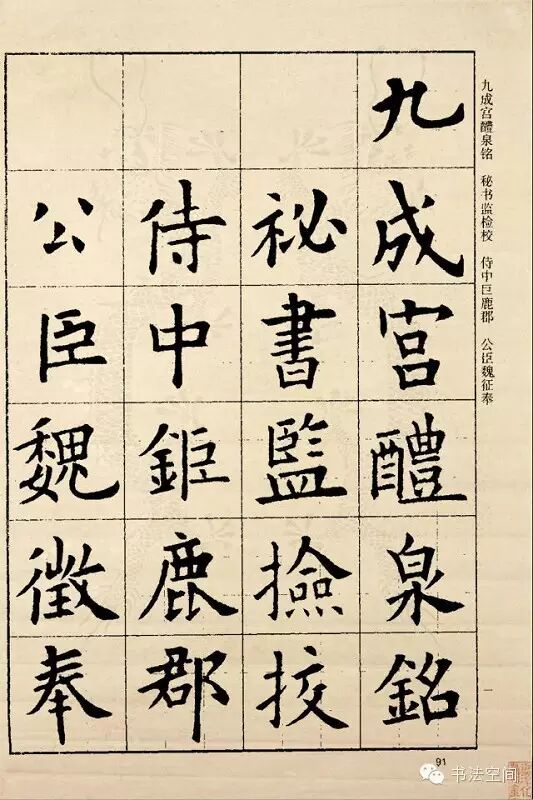 九成宫醴泉铭 秘书监检校 侍中巨鹿郡 公臣魏征奉
九成宮醴泉銘
祕書監撿挍
侍中鉅鹿郡
公臣魏徵奉
91
书法空间